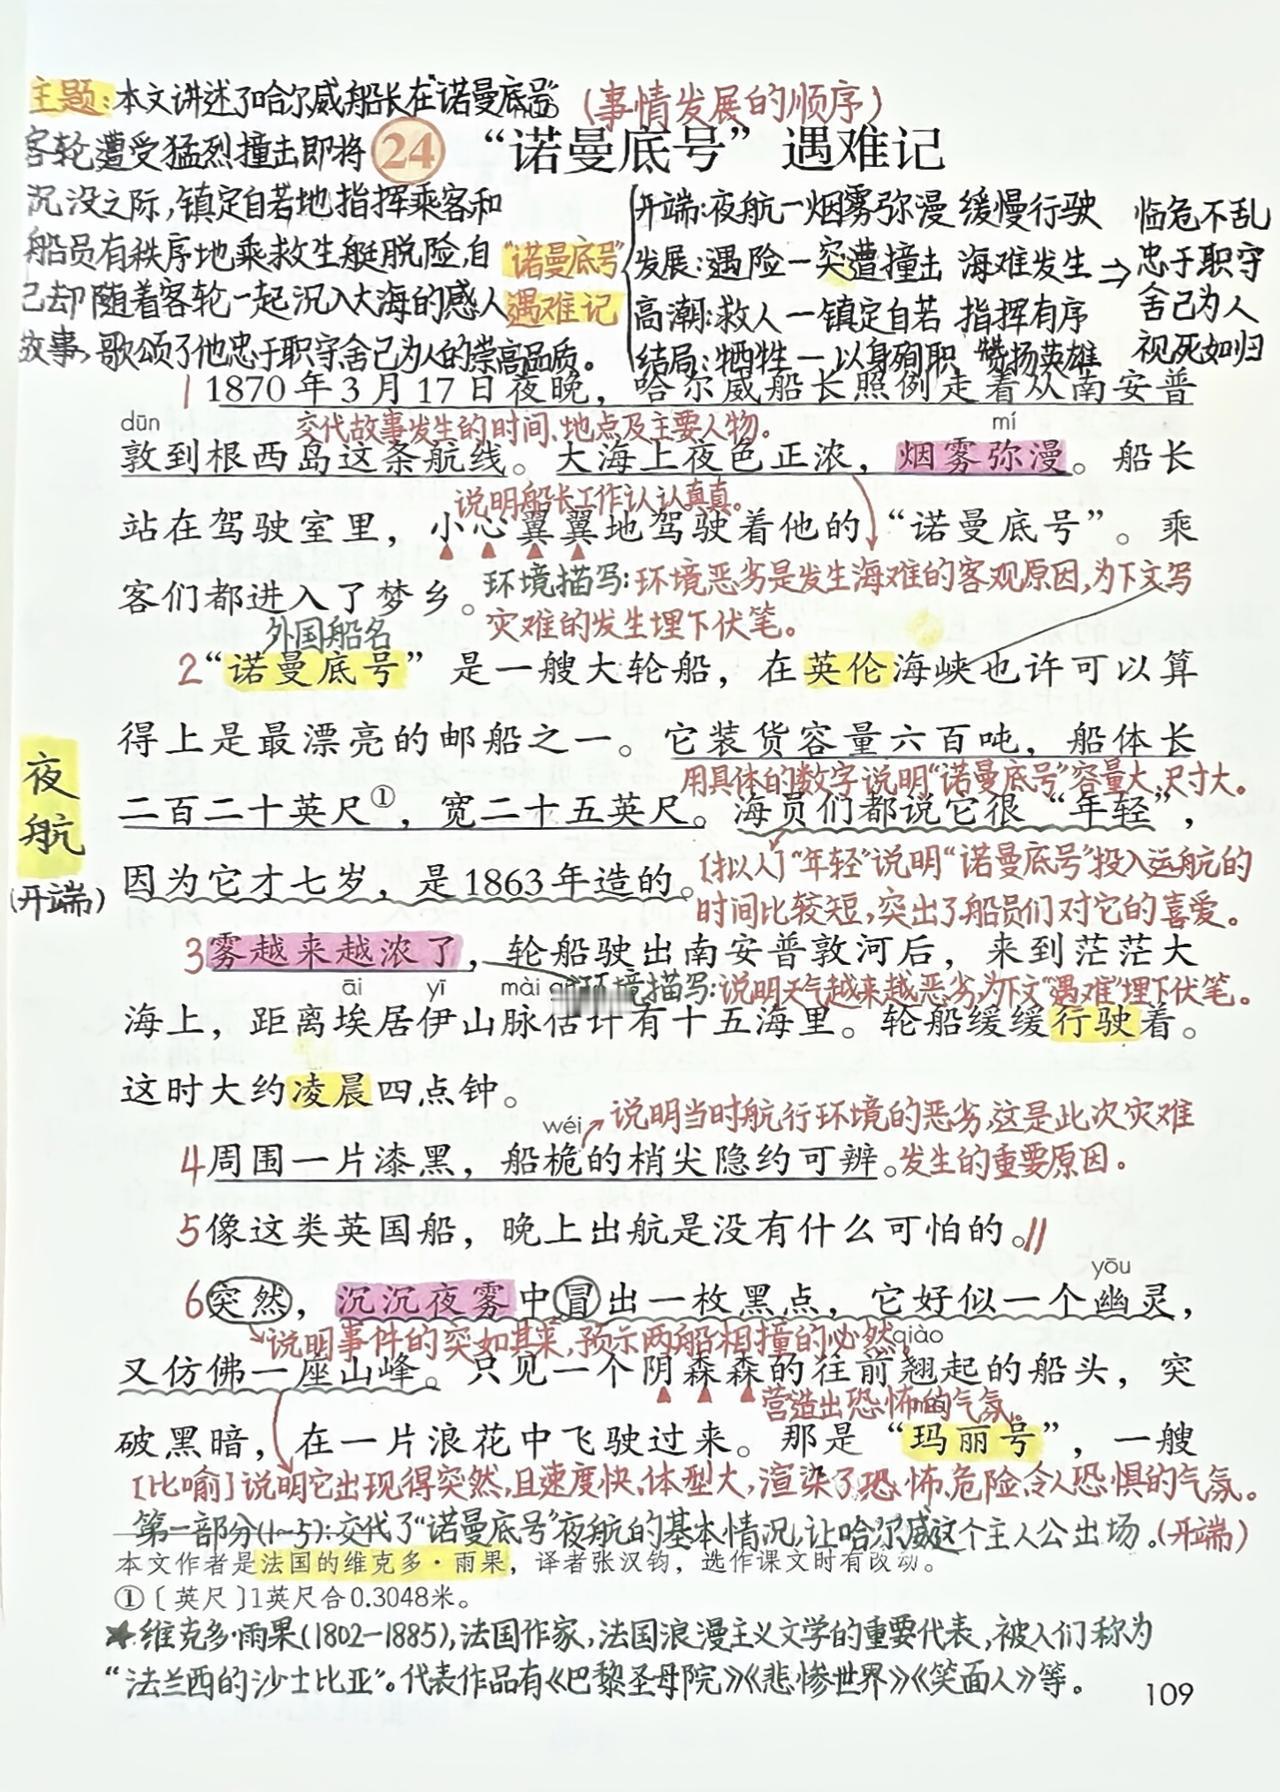 主题:本文讲述了哈尔威船长在“诺曼底号”
(事情发展的顺序)
客轮遭受猛烈撞击即将
24 “诺曼底号”遇难记
沉没之际,镇定自若地指挥乘客和
船员有秩序地乘救生艇脱险,自
己却随着客轮一起沉入大海的感人
故事,歌颂了他忠于职守舍己为人的崇高品质。
“诺曼底号”
遇难记
开端:夜航一烟雾弥漫 缓慢行驶
发展:遇险一突遭撞击 海难发生
高潮:救人一镇定自若 指挥有序
结局:牺牲一以身殉职 赞扬英雄
临危不乱
忠于职守
舍己为人
视死如归
1 1870年3月17日夜晚,哈尔威船长照例走着从南安普
dūn
交代故事发生的时间、地点及主要人物。
mí
敦到根西岛这条航线。大海上夜色正浓,烟雾弥漫。船长
说明船长工作认认真真。
站在驾驶室里,小心翼翼地驾驶着他的“诺曼底号”。乘
客们都进入了梦乡。
环境描写:环境恶劣是发生海难的客观原因,为下文写
灾难的发生埋下伏笔。
外国船名
2“诺曼底号”是一艘大轮船,在英伦海峡也许可以算
得上是最漂亮的邮船之一。它装货容量六百吨,船体长
用具体的数字说明“诺曼底号”容量大、尺寸大。
二百二十英尺①,宽二十五英尺。海员们都说它很“年轻”,
因为它才七岁,是1863年造的。
[拟人]“年轻”说明“诺曼底号”投入运航的
时间比较短,突出了船员们对它的喜爱。
夜航
(开端)
3雾越来越浓了,轮船驶出南安普敦河后,来到茫茫大
āi yī mài
环境描写:说明天气越来越恶劣,为下文“遇难”埋下伏笔。
海上,距离埃居伊山脉估计有十五海里。轮船缓缓行驶着。
这时大约凌晨四点钟。
wéi
说明当时航行环境的恶劣,这是此次灾难
4周围一片漆黑,船桅的梢尖隐约可辨。
发生的重要原因。
5像这类英国船,晚上出航是没有什么可怕的。
yōu
6突然,沉沉夜雾中冒出一枚黑点,它好似一个幽灵,
说明事件的突如其来,预示两船相撞的必然
qiào
又仿佛一座山峰。只见一个阴森森的往前翘起的船头,突
营造出恐怖的气氛。
破黑暗,在一片浪花中飞驶过来。那是“玛丽号”,一艘
[比喻]说明它出现得突然,且速度快、体型大,渲染了恐怖、危险、令人恐惧的气氛。
第一部分(1~5):交代了“诺曼底号”夜航的基本情况,让哈尔威这个主人公出场。(开端)
本文作者是法国的维克多·雨果,译者张汉钧,选作课文时有改动。
①〔英尺〕1英尺合0.3048米。
★维克多·雨果(1802-1885),法国作家,法国浪漫主义文学的重要代表,被人们称为
“法兰西的沙士比亚”。代表作品有《巴黎圣母院》《悲惨世界》《笑面人》等。
109